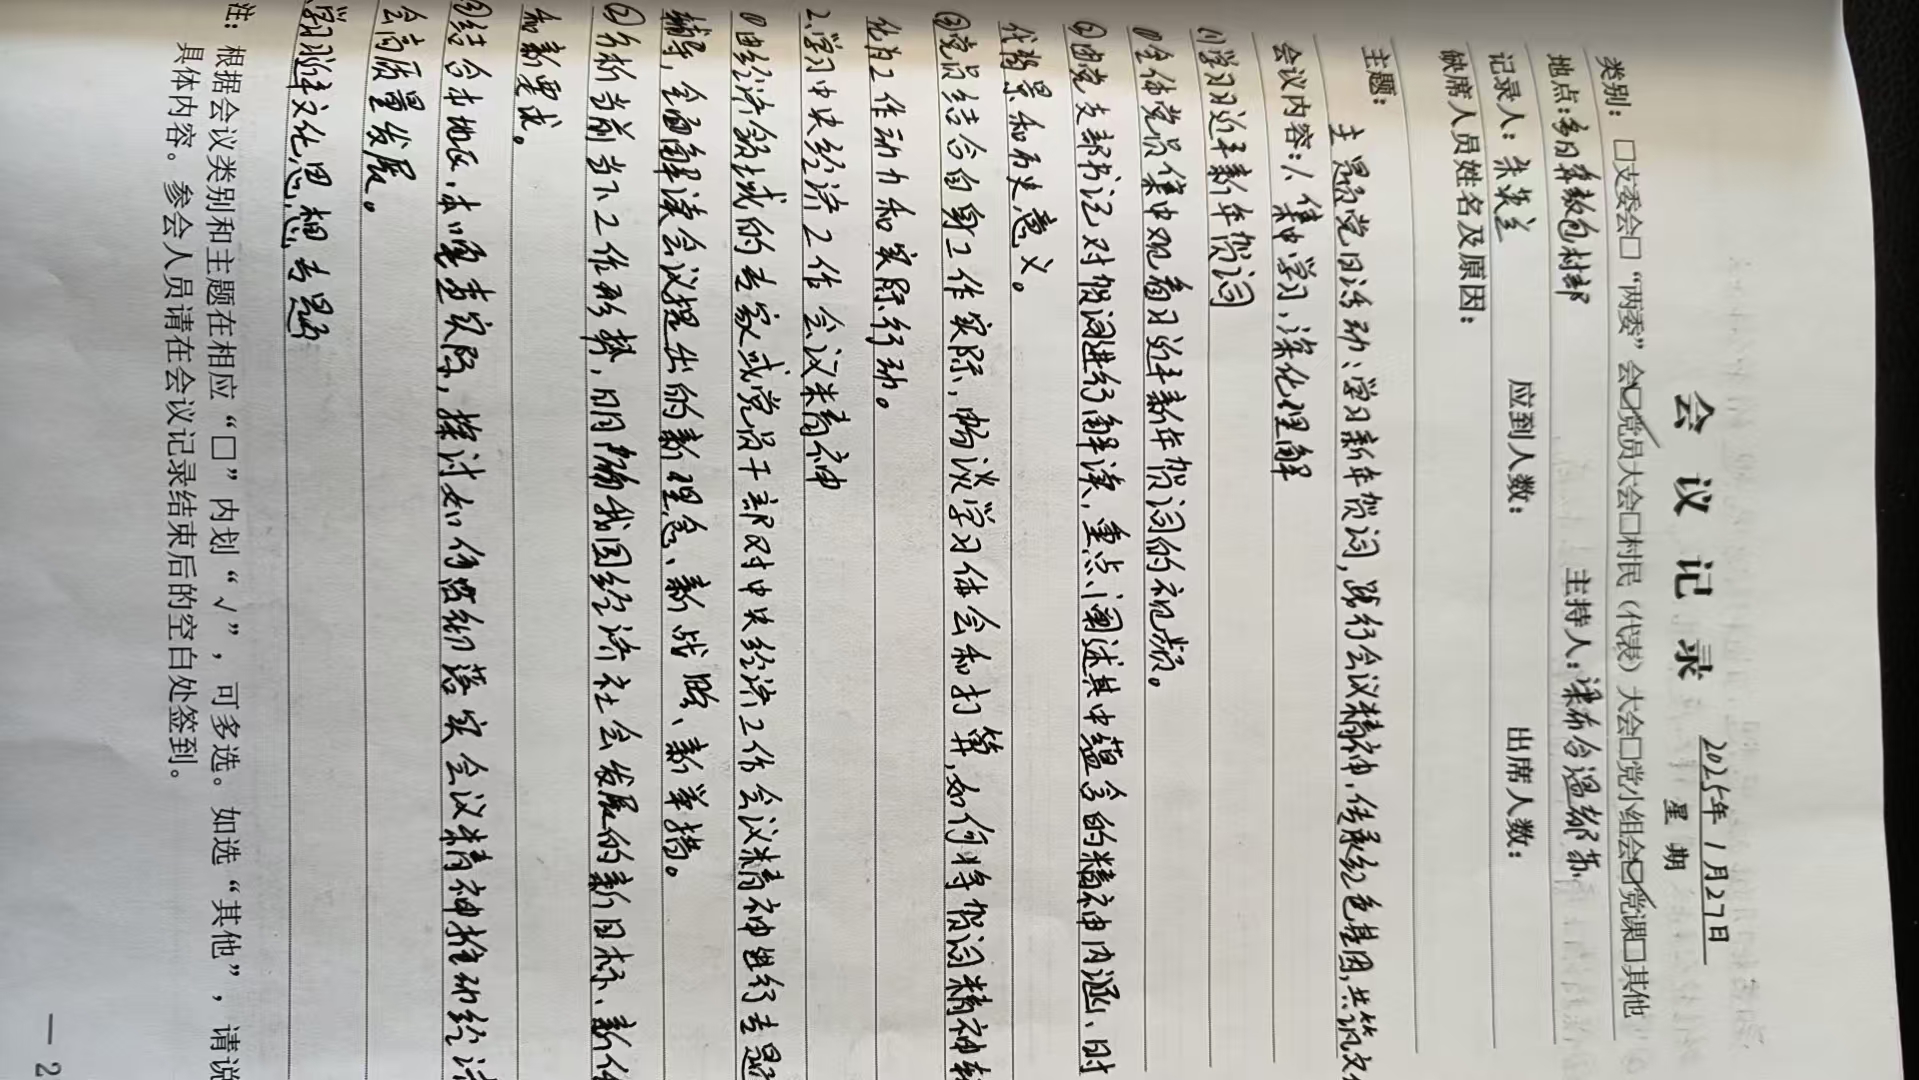 会议记录
2025年1月27日
星期
类别：□支委会□“两委”会☑党员大会□村民（代表）大会□党小组会☑党课□其他
地点：敖包村部 主持人：
记录人： 应到人数： 出席人数：
缺席人员姓名及原因：
主题：
主题党日活动：学习新年贺词，践行会议精神，传承红色基因，共筑文
会议内容：1.集中学习、深化理解
(1)学习习近平新年贺词
①全体党员集中观看习近平新年贺词的视频。
②由党支部书记对贺词进行解读，重点阐述其中蕴含的精神内涵、时
代背景和历史意义。
③党员结合自身工作实际，畅谈学习体会和打算，如何将贺词精神转
化为工作动力和实际行动。
2.学习中央经济工作会议精神
①由经济领域的专家或党员干部对中央经济工作会议精神进行专题
辅导，全面解读会议提出的新理念、新战略、新举措。
②分析当前工作形势，明确我国经济社会发展的新目标、新任
和新要求。
③结合本地区、本嘎查实际，探讨如何贯彻落实会议精神推动经济
会高质量发展。
学习习近平文化思想专题
注：根据会议类别和主题在相应“□”内划“√”，可多选。如选“其他”，请说
具体内容。参会人员请在会议记录结束后的空白处签到。
— 2